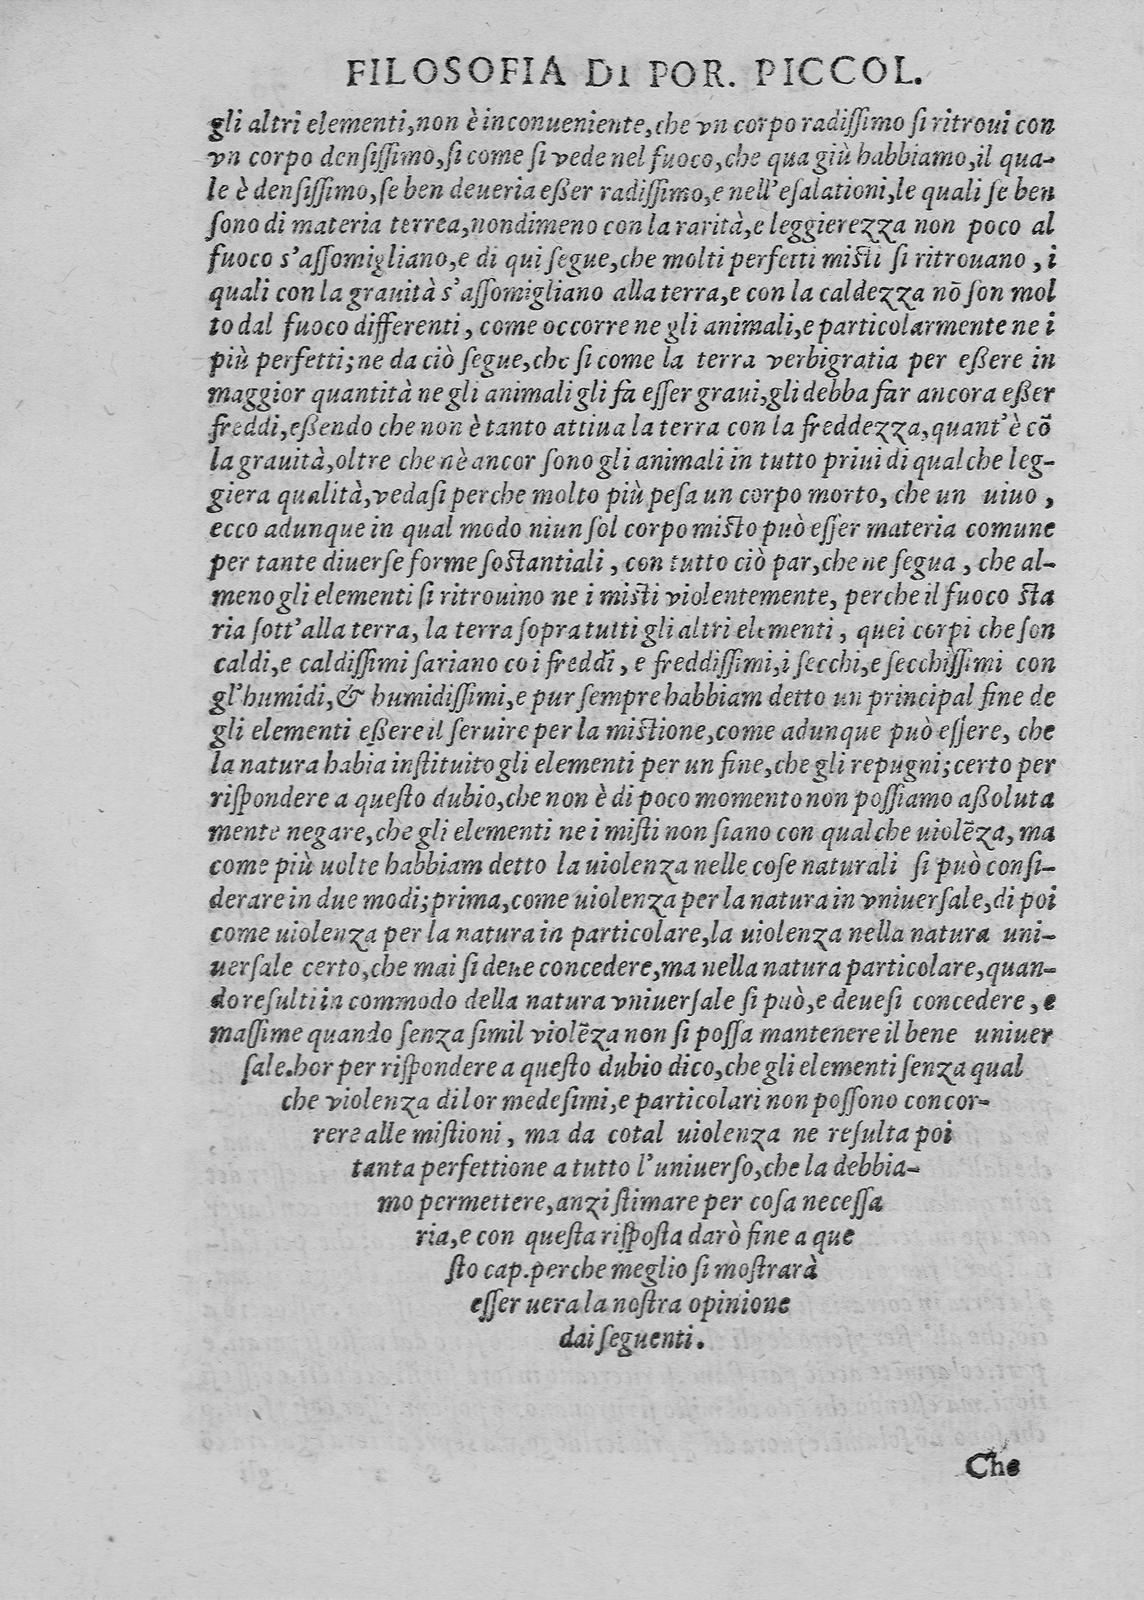 FILOSOFIA DI POR. PICCOL.
gli altri elementi,non è inconueniente,che vn corpo radiſſimo ſi ritroui con
vn corpo denſiſſimo,ſi come ſi vede nel fuoco,che qua giù habbiamo,il qua-
le è denſiſſimo,ſe ben deueria eßer radiſſimo,e nell'eſalationi,le quali ſe ben
ſono di materia terrea,nondimeno con la rarità,e leggierezza non poco al
fuoco s'aſſomigliano,e di qui ſegue,che molti perfetti miſti ſi ritrouano , i
quali con la grauità s'aſſomigliano alla terra,e con la caldezza nō ſon mol
to dal fuoco differenti , come occorre ne gli animali,e particolarmente ne i
più perfetti;ne da ciò ſegue,che ſi come la terra verbigratia per eßere in
maggior quantità ne gli animali gli fa eſſer graui,gli debba far ancora eßer
freddi,eßendo che non è tanto attiua la terra con la freddezza,quant'è cō
la grauità,oltre che nè ancor ſono gli animali in tutto priui di qualche leg-
giera qualità,vedaſi perche molto più peſa un corpo morto, che un uiuo ,
ecco adunque in qual modo niun ſol corpo miſto può eſſer materia comune
per tante diuerſe forme ſoſtantiali , con tutto ciò par,che ne ſegua , che al-
meno gli elementi ſi ritrouino ne i miſti violentemente, perche il fuoco ſta
ria ſott'alla terra, la terra ſopra tutti gli altri elementi , quei corpi che ſon
caldi,e caldiſſimi ſariano co i freddi , e freddiſſimi,i ſecchi,e ſecchiſſimi con
gl'humidi,& humidiſſimi,e pur ſempre habbiam detto un principal fine de
gli elementi eßere il ſeruire per la miſtione,come adunque può eſſere, che
la natura habia inſtituito gli elementi per un fine,che gli repugni;certo per
riſpondere a queſto dubio,che non è di poco momento non poſſiamo aßoluta
mente negare,che gli elementi ne i miſti non ſiano con qualche uiolēza, ma
come più uolte habbiam detto la uiolenza nelle coſe naturali ſi può conſi-
derare in due modi;prima,come uiolenza per la natura in vniuerſale,di poi
come uiolenza per la natura in particolare,la uiolenza nella natura uni-
uerſale certo,che mai ſi deue concedere,ma nella natura particolare,quan-
do reſulti in commodo della natura vniuerſale ſi può,e deueſi concedere , e
maſſime quando ſenza ſimil violēza non ſi poſſa mantenere il bene uniuer
ſale.hor per riſpondere a queſto dubio dico,che gli elementi ſenza qual
che violenza di lor medeſimi,e particolari non poſſono concor-
rere alle miſtioni , ma da cotal uiolenza ne reſulta poi
tanta perfettione a tutto l'uniuerſo,che la debbia-
mo permettere,anzi ſtimare per coſa neceſſa
ria,e con queſta riſpoſta darò fine a que
ſto cap.perche meglio ſi moſtrarà
eſſer uera la noſtra opinione
dai ſeguenti.
Che